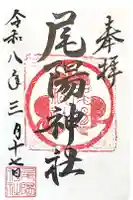 奉拝
尾陽神社
令和八年三月十七日